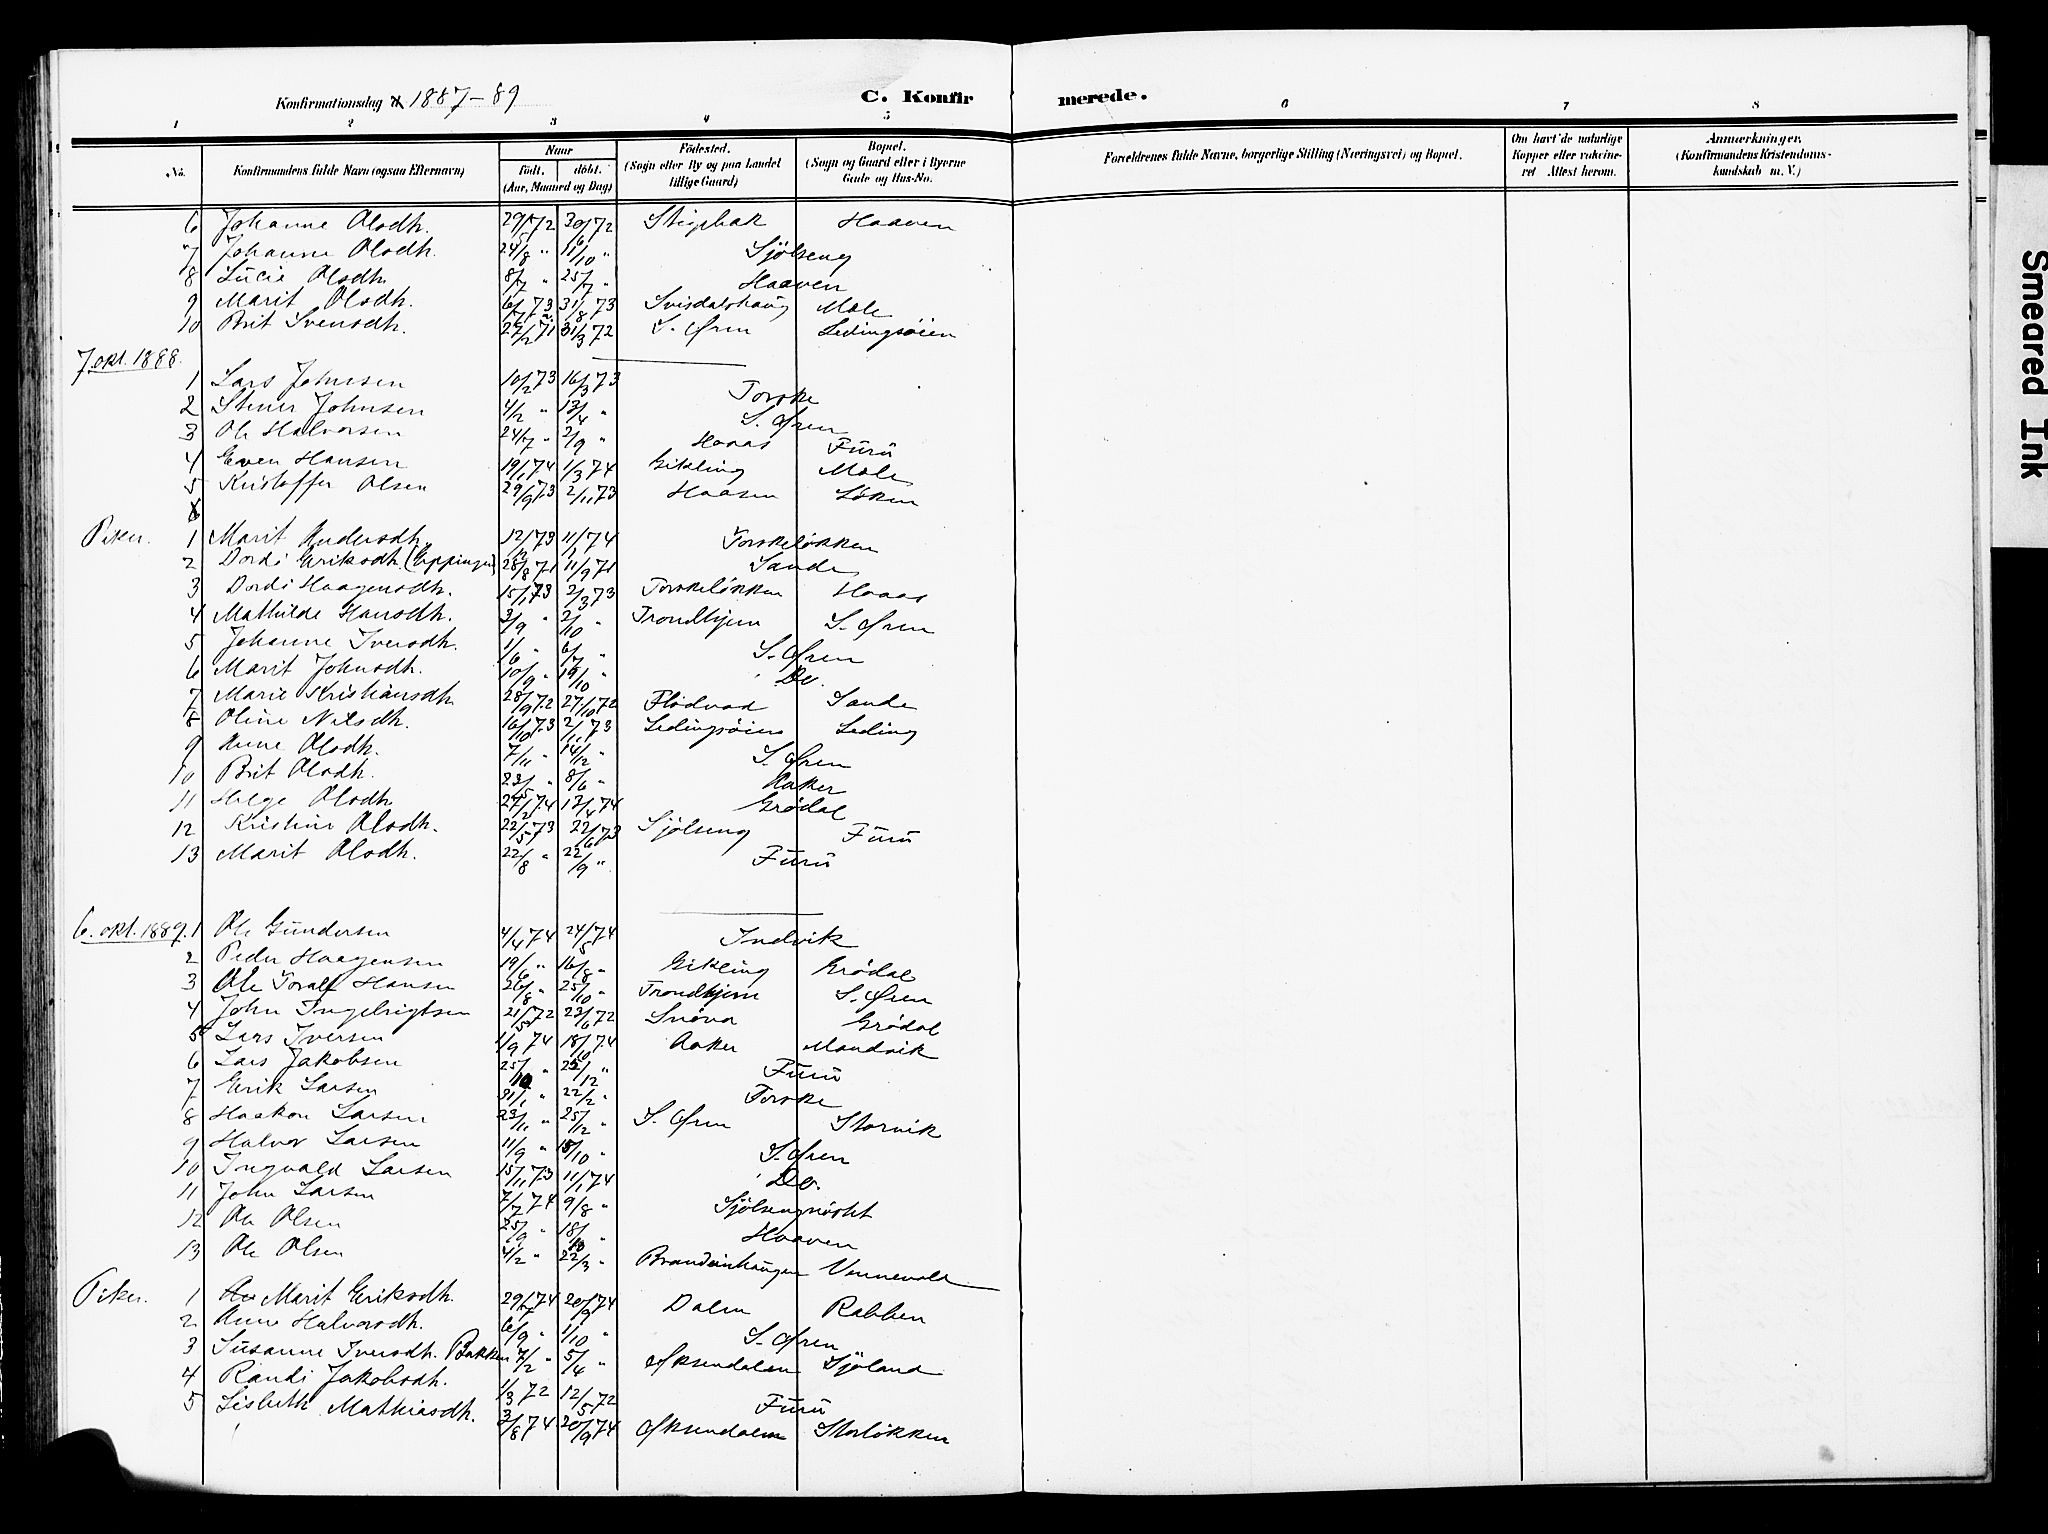 Konfirmationsdag 1887-89
C. Konfirmerede.
1 2 3 4 5 6 7 8
No. Konfirmandens fulde Navn (ogsaa Efternavn) Naar født. døbt. (Aar, Maaned og Dag) Fødested. (Sogn eller By og paa Landet tillige Gaard) Bopæl. (Sogn og Gaard eller i Byerne Gade og Hus-No. Forældrenes fulde Navne, borgerlige Stilling (Næringsvei) og Bopæl. Om havt de naturlige Kopper eller vakcineret Attest herom. Anmærkninger. (Konfirmandens Kristendomskundskab m. V.)
6 Johanne Olsdh. 29/5 72 30/6 72 Haaven
7 Johanne Olsdh. 24/8 " 11/10 " Sjølseng
8 Lucie Olsdh. 8/7 " 25/7 " Haaven
9 Marit Olsdh. 6/7 73 31/8 73 Svisdalshaug Mæle
10 Brit Svensdh. 27/12 71 31/3 72 S. Øren Ledingsøien
7 okt. 1888.
1 Lars Johnsen 10/2 73 16/3 73 Torske
2 Johnsen 4/2 " 13/4 " S. Øren
3 Ole Halvorsen 24/7 " 2/9 " Haaas Furu
4 Even Hansen 19/1 74 1/3 74 Gikling Mæle
5 Kristoffer Olsen 29/9 73 2/11 73 Haasen Løken
Piker. 1 Marit Andersdh. 12/12 73 11/1 74 Torskeløkken
2 Dordi Eriksdh. (Eppinge) 28/8 71 11/9 71 Sande
3 Dordi Haagensdh. 15/1 73 2/3 73 Torskeløkken Haaas
4 Mathilde Hansdh. 3/9 " 2/10 " Trondhjem S. Øren
5 Johanne Iversdh. 1/6 " 6/7 " S. Øren
6 Marit Johnsdh. 10/9 " 19/10 " Do.
7 Marie Kristiansdh. 28/9 72 27/10 72 Flødvad Sande
8 Oline Nilsdh. 16/10 73 2/11 73 Ledingsøien Leding
9 Anne Olsdh. 7/11 " 14/12 " S. Øren
10 Brit Olsdh. 23/5 " 8/6 " Aaker
11 Helge Olsdh. 27/2 74 12/4 74 Grødal
12 Kristine Olsdh. 22/5 73 22/6 73 Sjølseng Furu
13 Marit Olsdh. 22/8 " 22/9 " Furu
6. okt. 1889. 1 Ole Gundersen 4/4 74 24/5 74 Indvik
2 Peder Haagensen 19/6 " 16/8 " Gikling Grødal
3 Ole Toralf Hansen 26/8 " 25/10 " Trondhjem S. Øren
4 John Ingebrigtsen 21/5 72 23/6 72 Snøva Grødal
5 Lars Iversen 1/9 74 18/10 74 Aaker Mandvik
6 Lars Jakobsen 25/10 " /12 " Furu
7 Erik Larsen 31/1 " 22/2 " Torske
8 Haakon Larsen 23/11 " 25/12 " S. Øren Storvik
9 Halvor Larsen 11/9 " 18/10 " S. Øren
10 Ingvald Larsen 15/11 73 11/1 74 Do.
11 John Larsen 7/7 74 9/8 "
12 Ole Olsen 25/9 " 18/10 " Haaven
13 Ole Olsen 4/2 " 22/3 " Vennevold
Piker. 1 Marit Eriksdh. 29/7 74 20/9 74 Dalen Rabben
2 Anne Halvorsdh. 6/9 " 1/10 " S. Øren
3 Susanne Iversdh. Bakken 7/2 " 5/4 " Øksendalen Sjøland
4 Randi Jakobsdh. 1/3 72 12/5 72 Furu
5 Lisbeth Mathiasdh. 3/8 74 20/9 74 Øksendalen Storløkken
Smeared Ink